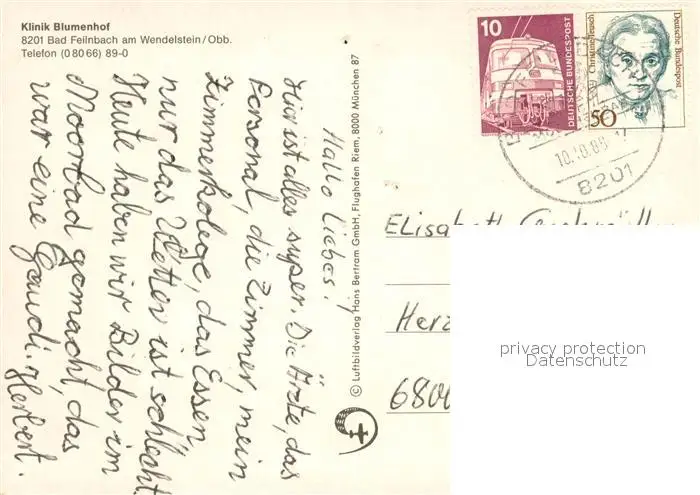 Klinik Blumenhof
8201 Bad Feilnbach am Wendelstein/Obb.
Telefon (0 80 66) 89-0
Hallo Liebes!
Hier ist alles super. Die Ärzte, das
Personal, die Zimmer, mein
Zimmerkolege, das Essen,
nur das Wetter ist schlecht.
Heute haben wir Bilder im
Moorbad gemacht, das
war eine Gaudi. Herbert.
© Luftbildverlag Hans Bertram GmbH, Flughafen Riem, 8000 München 87
10
DEUTSCHE BUNDESPOST
Christine Teusch
Deutsche Bundespost
50
8201
Elisabeth
Herz
6800
privacy protection
Datenschutz